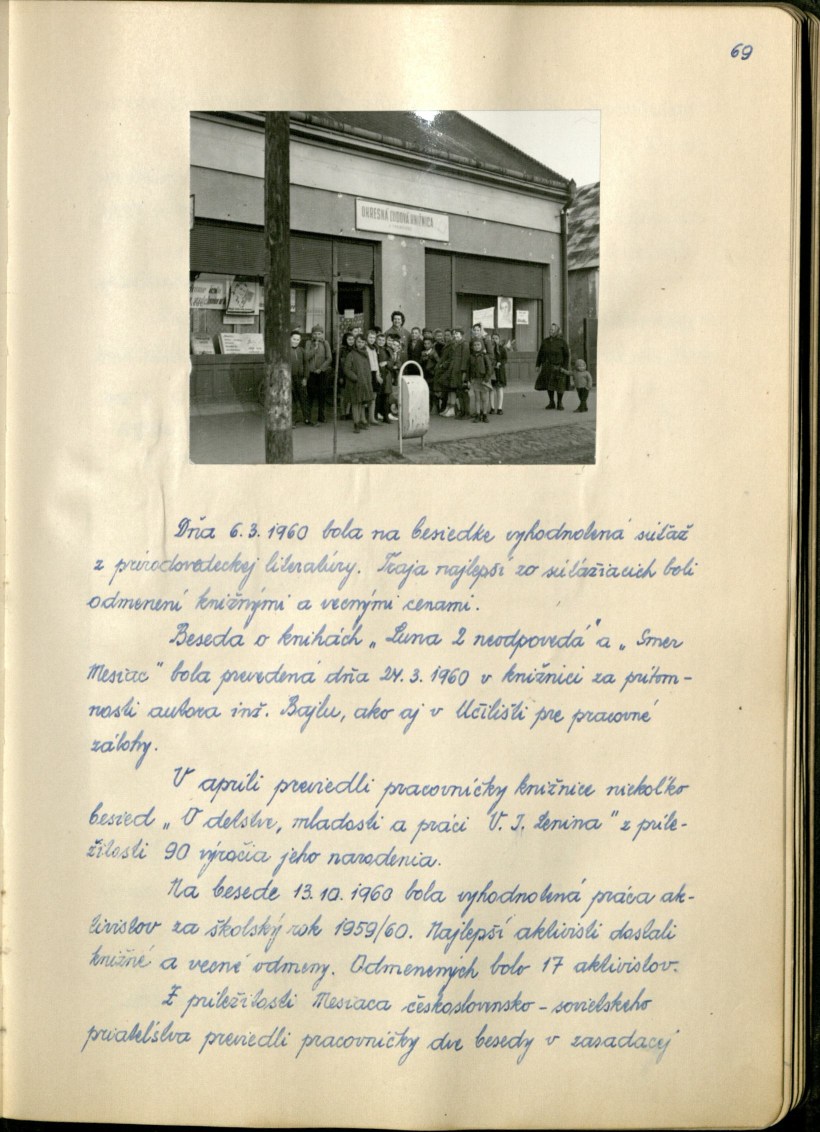 69
OKRESNÁ ĽUDOVÁ KNIŽNICA
Dňa 6.3.1960 bola na besiedke vyhodnotená súťaž
z prírodovedeckej literatúry. Traja najlepší zo súťažiacich boli
odmenení knižnými a vecnými cenami.
Beseda o knihách „Luna 2 neodpovedá" a „Smer
Mesiac" bola prevedená dňa 24.3.1960 v knižnici za prítom-
nosti autora inž. Bajlu, ako aj v Učilišti pre pracovné
zálohy.
V apríli previedli pracovníčky knižnice niekoľko
besied „O detstve, mladosti a práci V. I. Lenina" z príle-
žitosti 90 výročia jeho narodenia.
Na besede 13.10.1960 bola vyhodnotená práca ak-
tivistov za školský rok 1959/60. Najlepší aktivisti dostali
knižné a vecné odmeny. Odmenených bolo 17 aktivistov.
Z príležitosti Mesiaca československo-sovietskeho
priateľstva previedli pracovníčky dve besedy v zasadacej